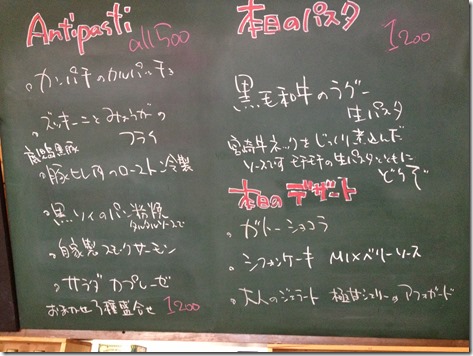 Antipasti all 500
。カンパチのカルパッチョ
。ズッキーニとみょうがの
フライ
霧島黒豚
。豚ヒレ肉のロースト 冷製
。黒ソイのパン粉焼
タルタルソースで
。自家製スモークサーモン
。サラダ カプレーゼ
おまかせ3種盛合せ 1200
本日のパスタ 1200
黒毛和牛のラグー
生パスタ
宮崎牛ネックをじっくり煮込んだ
ソースです モチモチの生パスタとともに
どうぞ
本日のデザート
。ガトーショコラ
。シフォンケーキ MIXベリーソース
。大人のジェラート 極甘シェリーのアフォガード